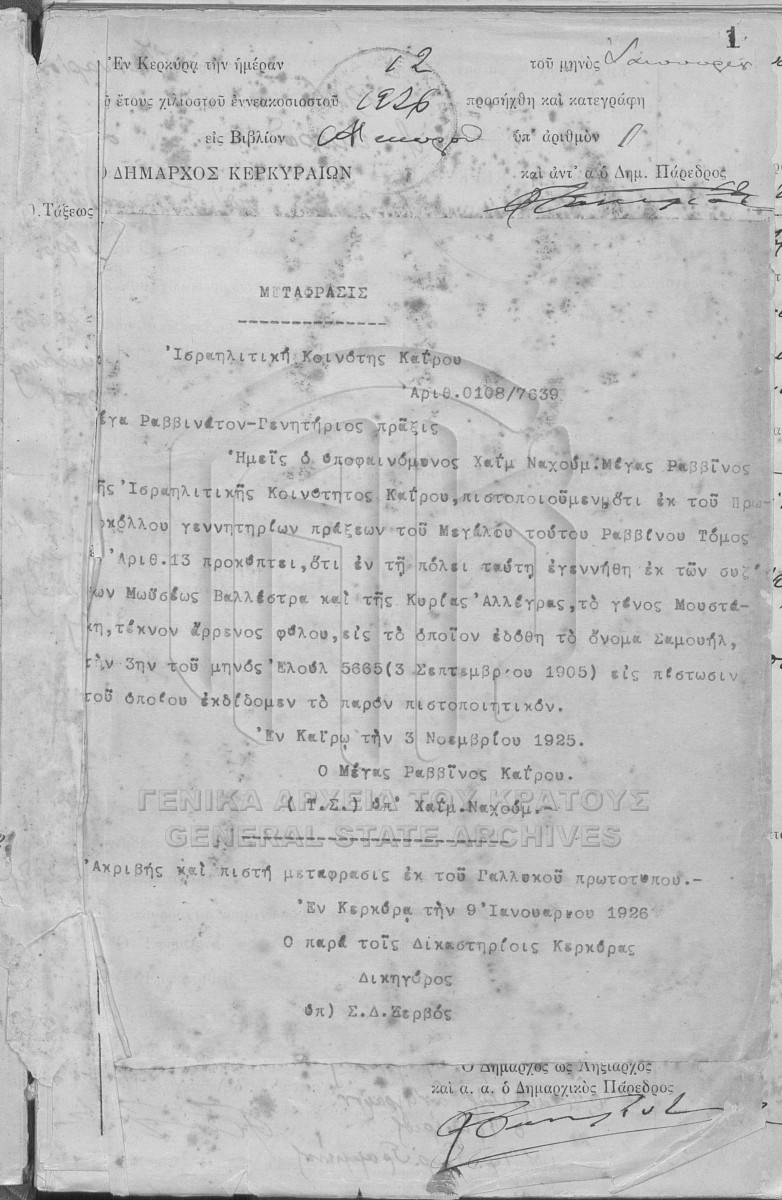 1
Ἐν Κερκύρᾳ τὴν ἡμέραν 12 τοῦ μηνὸς
ἔτους χιλιοστοῦ ἐννεακοσιοστοῦ 1926 προσήχθη καὶ κατεγράφη
εἰς Βιβλίον ὑπ' ἀριθμὸν 1
Ο ΔΗΜΑΡΧΟΣ ΚΕΡΚΥΡΑΙΩΝ καὶ ἀντ' α ὁ Δημ. Πάρεδρος
Τάξεως
ΜΕΤΑΦΡΑΣΙΣ
Ἰσραηλιτική Κοινότης Καΐρου
Ἀριθ.0108/7639
έγα Ραββινᾶτον-Γενητήριος πρᾶξις
Ἡμεῖς ὁ ὑποφαινόμενος Χαΐμ Ναχούμ.Μέγας Ραββῖνος
ῆς Ἰσραηλιτικῆς Κοινότητος Καΐρου,πιστοποιοῦμεν,ὅτι ἐκ τοῦ Πρω-
οκόλλου γεννητηρίων πράξεων τοῦ Μεγάλου τούτου Ραββίνου Τόμος
Ἀριθ.13 προκύπτει,ὅτι ἐν τῇ πόλει ταύτῃ ἐγεννήθη ἐκ τῶν συζ
ων Μωϋσέως Βαλλέστρα καὶ τῆς Κυρίας Ἀλλέγρας,τὸ γένος Μουστά-
κη,τέκνον ἄρρενος φύλου,εἰς τὸ ὁποῖον ἐδόθη τὸ ὄνομα Σαμουήλ,
τὴν 3ην τοῦ μηνός Ἐλούλ 5665(3 Σεπτεμβρίου 1905) εἰς πίστωσιν
τοῦ ὁποίου ἐκδίδομεν τὸ παρόν πιστοποιητικόν.
Ἐν Καΐρῳ τὴν 3 Νοεμβρίου 1925.
Ο Μέγας Ραββῖνος Καΐρου.
(Τ.Σ.) ὑπ' Χαΐμ.Ναχούμ.-
ΓΕΝΙΚΑ ΑΡΧΕΙΑ ΤΟΥ ΚΡΑΤΟΥΣ
GENERAL STATE ARCHIVES
Ἀκριβής καὶ πιστή μετάφρασις ἐκ τοῦ Γαλλικοῦ πρωτοτύπου.-
Ἐν Κερκύρα τὴν 9 Ἰανουαρίου 1926
Ο παρά τοῖς Δικαστηρίοις Κερκύρας
Δικηγόρος
ὑπ) Σ.Δ.Ζερβός
Ὁ Δήμαρχος ὡς Ληξίαρχος
καὶ α. α. ὁ Δημαρχικὸς Πάρεδρος